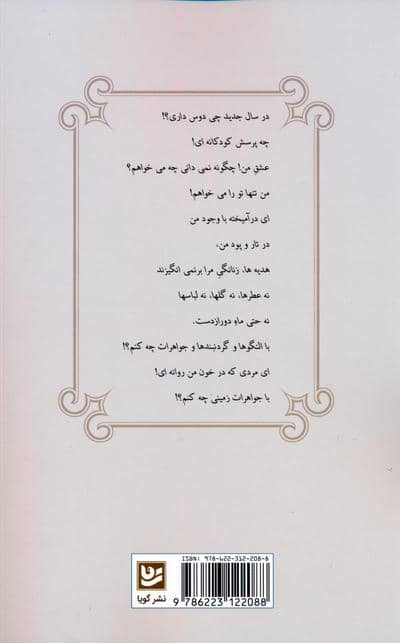 در سال جدید چی دوس داری؟!
چه پرسش کودکانه ای!
عشقِ من! چگونه نمی دانی چه می خواهم؟
من تنها تو را می خواهم!
ای درآمیخته با وجود من
در تار و پود من،
هدیه ها، زنانگیِ مرا برنمی انگیزند
نه عطرها، نه گلها، نه لباسها
نه حتی ماهِ دورازدست.
با النگوها و گردنبندها و جواهرات چه کنم؟!
ای مردی که در خون من روانه ای!
با جواهرات زمینی چه کنم؟!
ISBN: 978-622-312-208-8
نشر گویا
9 786223 122088